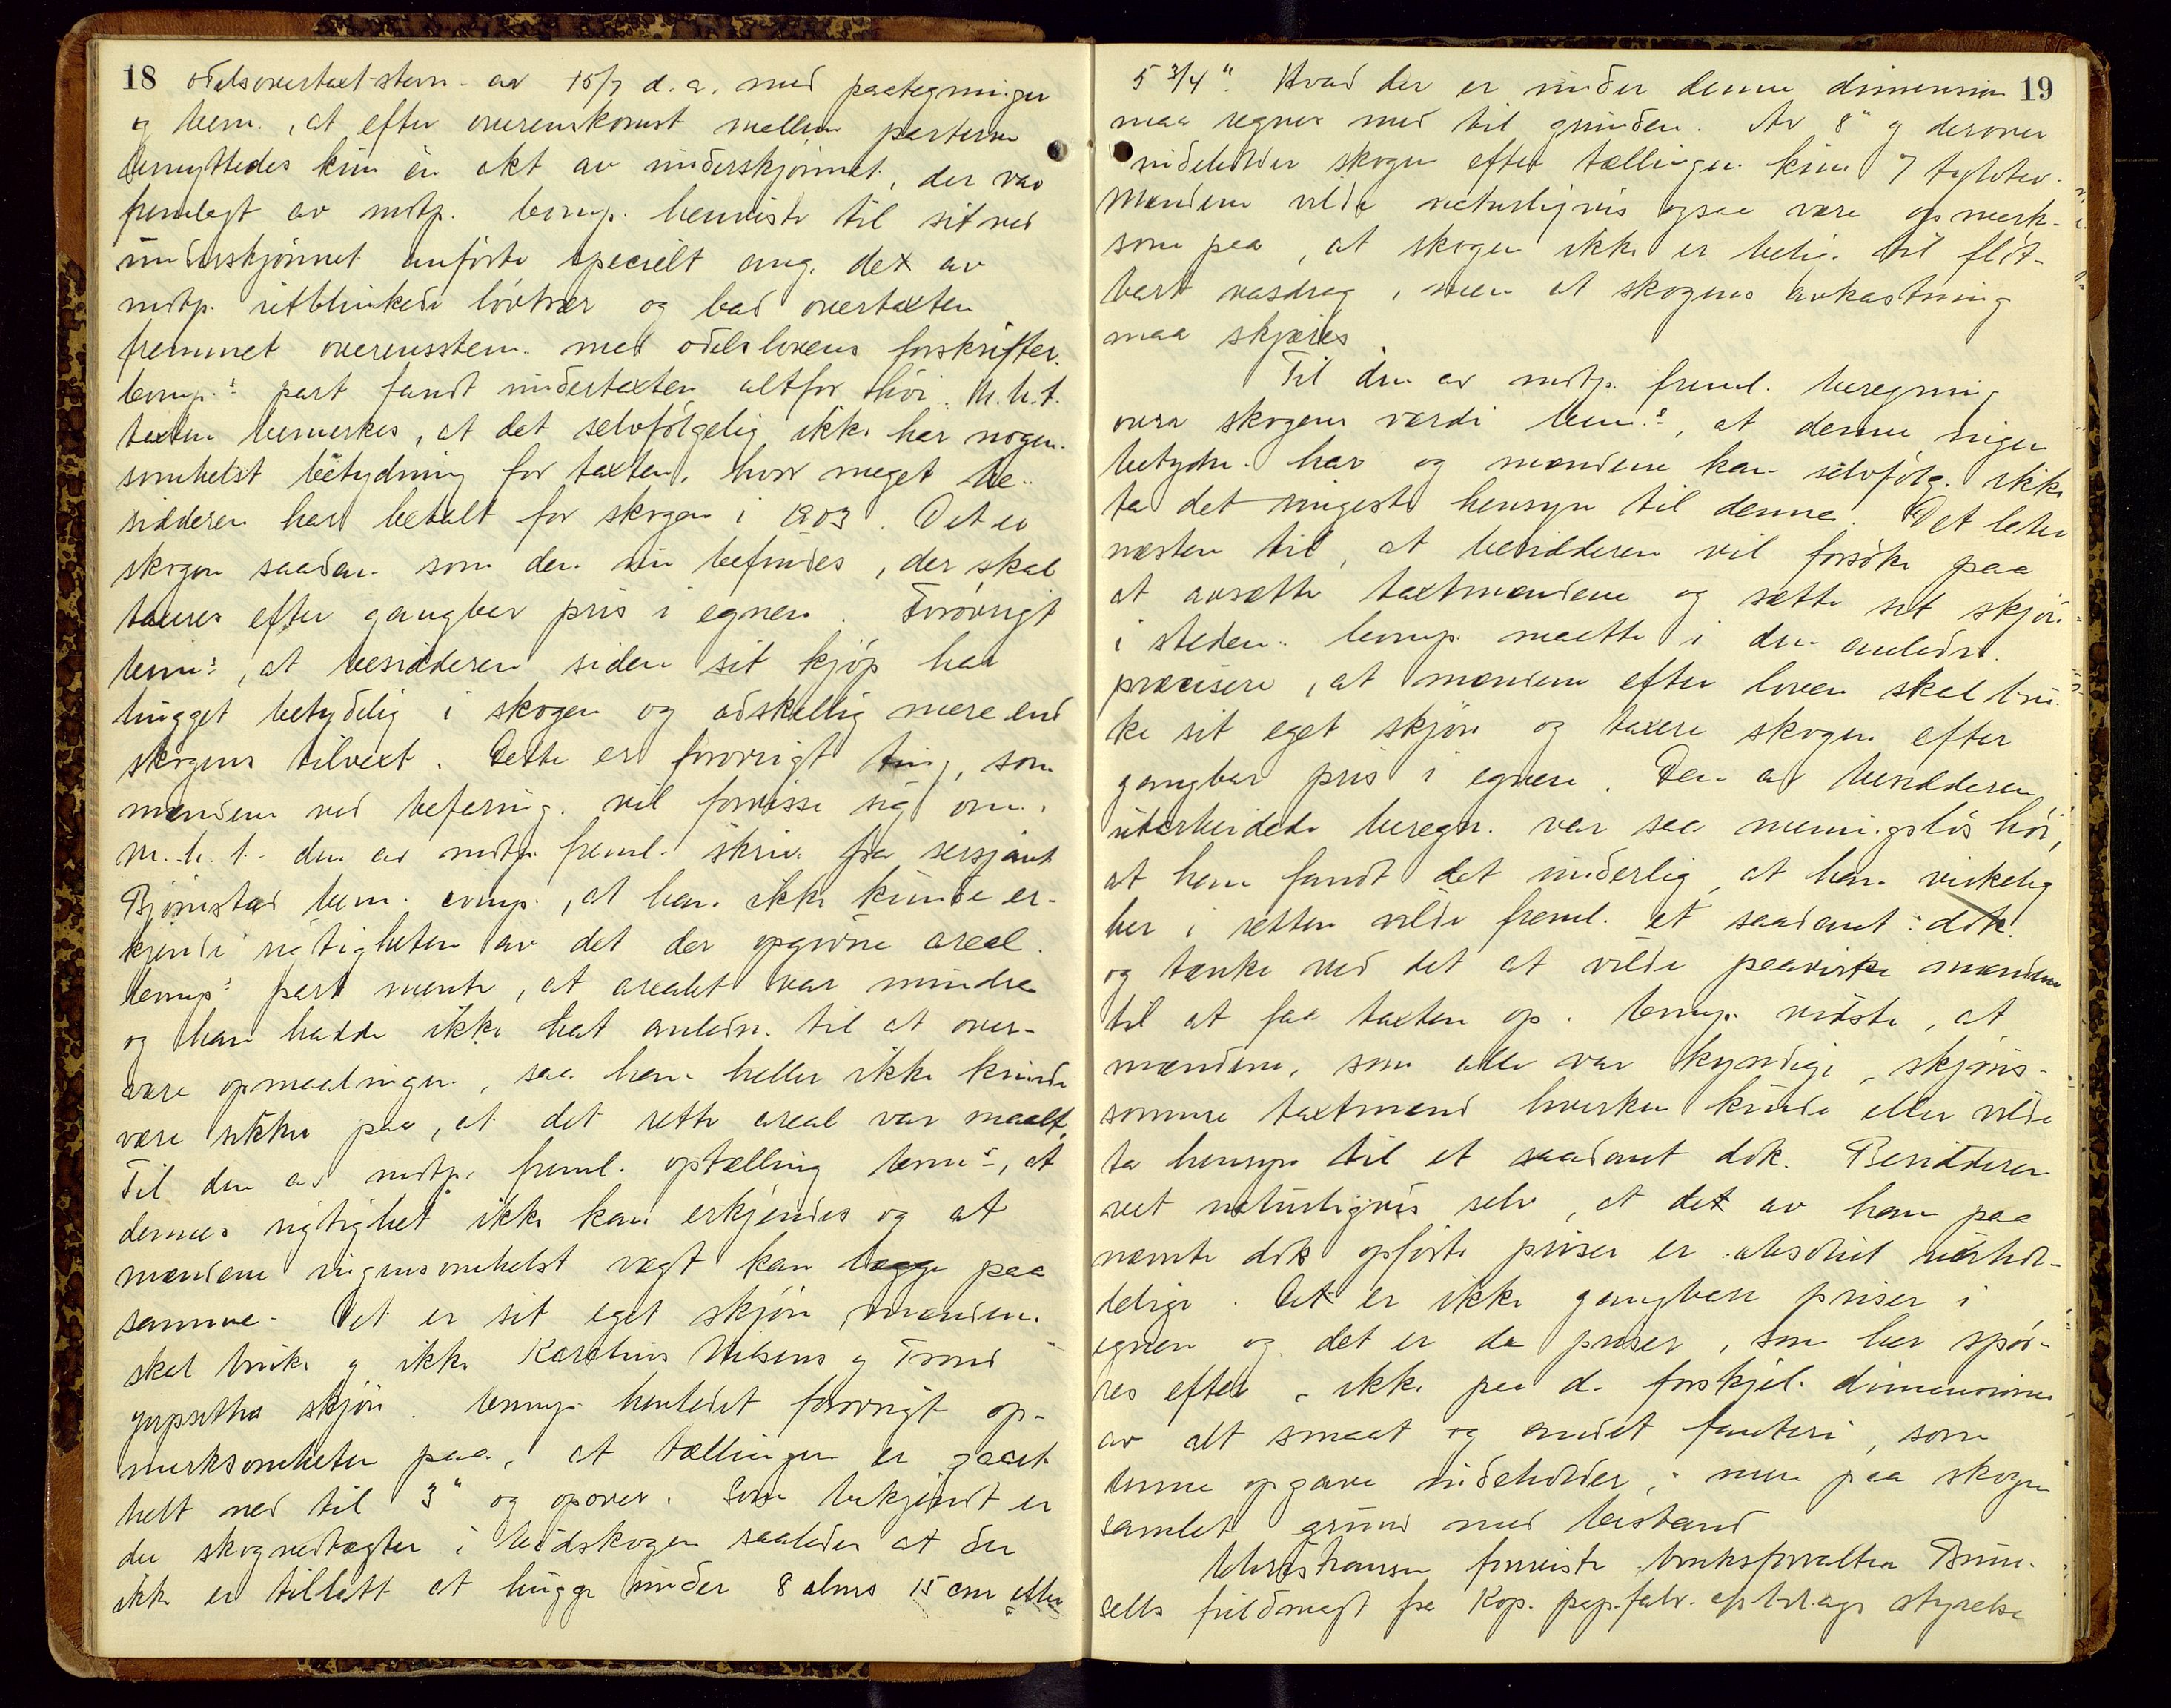 18 odelsovertaxt-stevn. av 15/7 d. a. med paategninger
og bem., at efter overenskomst mellem parterne
benyttedes kun én akt av underskjønnet, der var
fremlagt av motp. Comp. henviste til sit ved
underskjønnet anførte specielt ang. det av
motp. utblinkede løvtrær og bad overtaxten
fremmet overensstem. med odelslovens forskrifter.
Comp.s part fandt undertaxten altfor høi. M.h.t.
taxten bemerkes, at det selvfølgelig ikke har nogen-
somhelst betydning for taxten, hvor meget be-
sidderen har betalt for skogen i 1903. Det er
skogen saadan som den nu befindes, der skal
taxeres efter gangbar pris i egnen. Forøvrigt
bem.s, at besidderen siden sit kjøp har
hugget betydelig i skogen og adskillig mere end
skogens tilvext. Dette er forøvrigt ting, som
mændene ved befaring. vil forvisse sig om.
M.h.t. den av motp. freml. skriv. fra sersjant
Bjørnstad bem. comp., at han ikke kunde er-
kjende rigtigheten av det der opgivne areal.
Comp.s part mente, at arealet var mindre
og han hadde ikke hat anledn. til at over-
være opmaalingen, saa han heller ikke kunde
være sikker paa, at det rette areal var maalt.
Til den av motp. freml. optælling bem.s, at
dennes rigtighet ikke kan erkjendes og at
mændene ingensomhelst vægt kan lægge paa
samme. Det er sit eget skjøn mændene
skal bruke og ikke Karelius Nilsens og Trond
skjøn. Comp. henledet forøvrigt op-
merksomheten paa, at tællingen er gaaet
helt ned til 3" og opover. Som bekjendt er
der skogvedtægter i saaledes at der
ikke er tillatt at hugge under 8 alens 15 cm eller
19
5 3/4". Hvad der er under denne dimension
maa regnes med til grunden. Av 8" og derover
indeholder skogen efter tællingen kun 7 tylvter.
Mændene vilde naturligvis ogsaa være opmerk-
som paa, at skogen ikke er belig. til fløt-
bart vasdrag, men at skogens avkastning
maa skjæres.
Til den av motp. freml. beregning
over skogens værdi bem.s, at denne ingen
betydn. har og mændene kan selvfølg. ikke
ta det ringeste hensyn til denne. Det later
næsten til, at besidderen vil forsøke paa
at avsætte taxtmændene og sætte sit skjøn
i steden. Comp. maatte i den anledn.
præcisere, at mændene efter loven skal bru-
ke sit eget skjøn og taxere skogen efter
gangbar pris i egnen. Den av besidderen
utarbeidede beregn. var saa meningsløs høi,
at han fandt det underlig, at han virkelig
her i retten vilde freml. et saadant dok.
og tænke ved det at vilde paavirke mændene
til at faa taxten op. Comp. vidste, at
mændene, som alle var kyndige, skjøns-
somme taxtmænd hverken kunde eller vilde
ta hensyn til et saadant dok. Besidderen
vet naturligvis selv, at det av ham paa
nævnte dok opførte priser er absolut uerhol-
delige. Det er ikke gangbare priser i
egnen og det er de priser, som her spør-
res efter, ikke paa d. forskjel. dimensioner
av alt smaat og andet fanteri, som
denne opgave indeholder, men paa skogen
samlet grund med bestand
Christiansen fremviste bruksforvalter
fuldmagt fra Kop. pap.fabr. styrelse